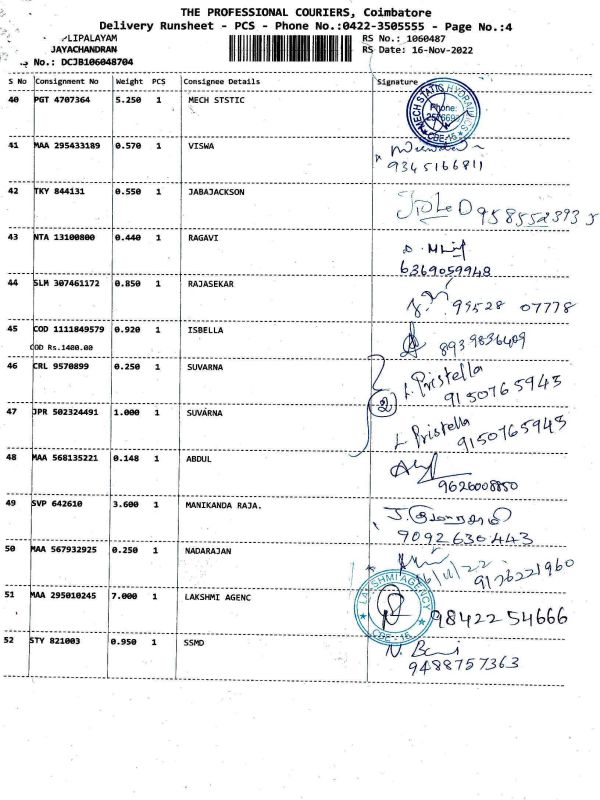 THE PROFESSIONAL COURIERS, Coimbatore
Delivery Runsheet - PCS - Phone No.:0422-3505555 - Page No.:4
LIPALAYAM RS No.: 1060487
JAYACHANDRAN RS Date: 16-Nov-2022
No.: DCJB106048704
S No Consignment No Weight PCS Consignee Details Signature
40 PGT 4707364 5.250 1 MECH STSTIC MECH STATIC HYDRAULICS Phone: CBE-15
41 MAA 295433189 0.570 1 VISWA
9345166811
42 TKY 844131 0.550 1 JABAJACKSON 9585523935
43 NTA 13100800 0.440 1 RAGAVI
6369059948
44 SLM 307461172 0.850 1 RAJASEKAR 99528 07778
45 COD 1111849579 0.920 1 ISBELLA 8939836409
COD Rs.1400.00
46 CRL 9570899 0.250 1 SUVARNA L. Pristella
9150765945
47 JPR 502324491 1.000 1 SUVARNA 2 L Pristella
9150765945
48 MAA 568135221 0.148 1 ABDUL
9626008850
49 SVP 642610 3.600 1 MANIKANDA RAJA.
9092630443
50 MAA 567932925 0.250 1 NADARAJAN 16/11/22 9176221960
51 MAA 295010245 7.000 1 LAKSHMI AGENC LAKSHMI AGENCY CBE-15 98422 54666
52 STY 821003 0.950 1 SSMD
9488757363